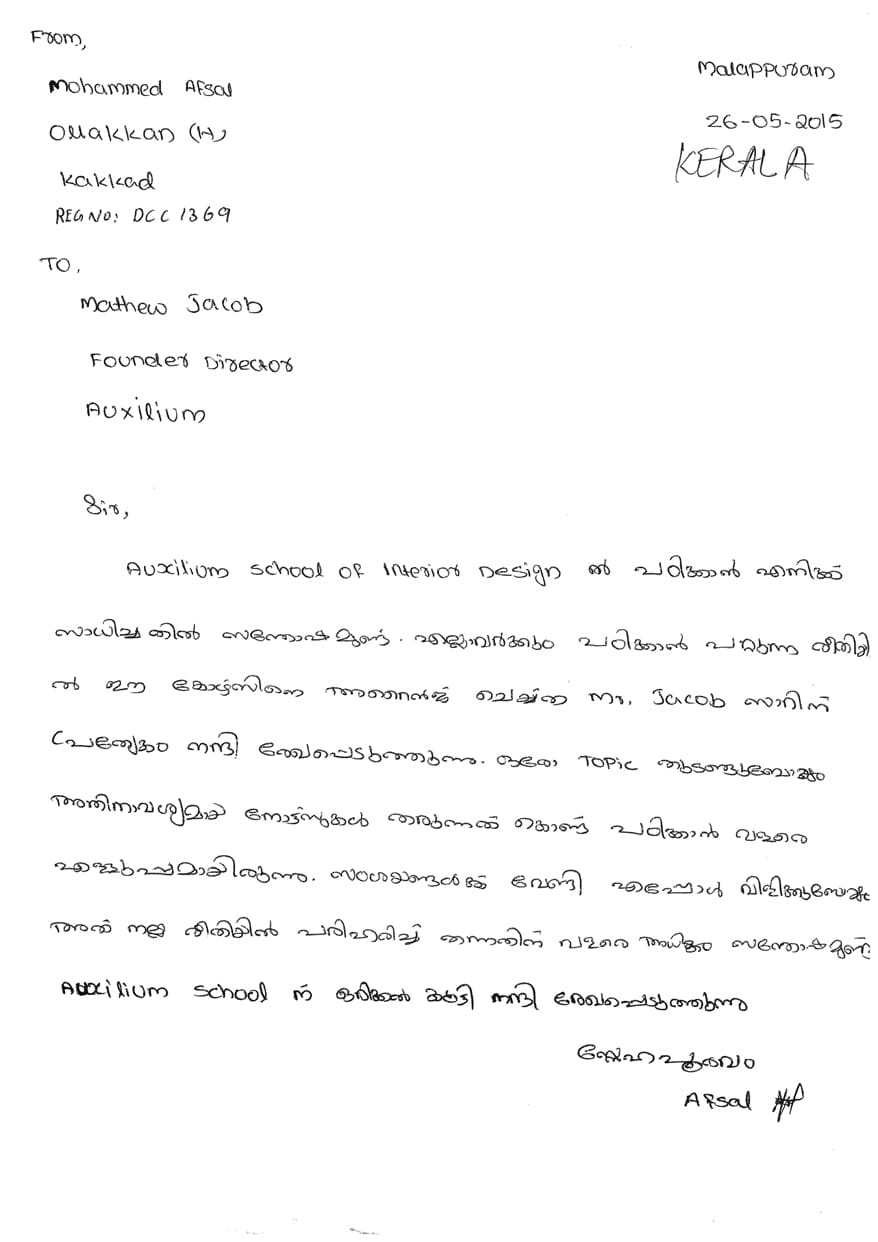 From,
Malappuram
Mohammed Afsal
26-05-2015
Ollakkan (H)
KERALA
Kakkad
REG NO: DCC 1369
TO,
Mathew Jacob
Founder Director
Auxilium
Sir,
Auxilium School of Interior Design ൽ പഠിക്കാൻ എനിക്ക്
സാധിച്ചതിൽ സന്തോഷമുണ്ട്. എല്ലാവർക്കും പഠിക്കാൻ പറ്റുന്ന രീതിയി
ൽ ഈ കോഴ്സിനെ അറൈൻജ് ചെയ്ത Mr. Jacob സാറിന്
പ്രത്യേകം നന്ദി രേഖപ്പെടുത്തുന്നു. ഓരോ TOPIC തുടങ്ങുമ്പോഴും
അതിനാവശ്യമായ നോട്ട്സുകൾ തരുന്നത് കൊണ്ട് പഠിക്കാൻ വളരെ
എളുപ്പമായിരുന്നു. സംശയങ്ങൾക്ക് വേണ്ടി എപ്പോൾ വിളിക്കുമ്പോഴും
അത് നല്ല രീതിയിൽ പരിഹരിച്ച് തന്നതിന് വളരെ അധികം സന്തോഷമുണ്ട്
Auxilium School ന് ഒരിക്കൽ കൂട്ടി നന്ദി രേഖപ്പെടുത്തുന്നു
സ്നേഹപൂർവം
Afsal